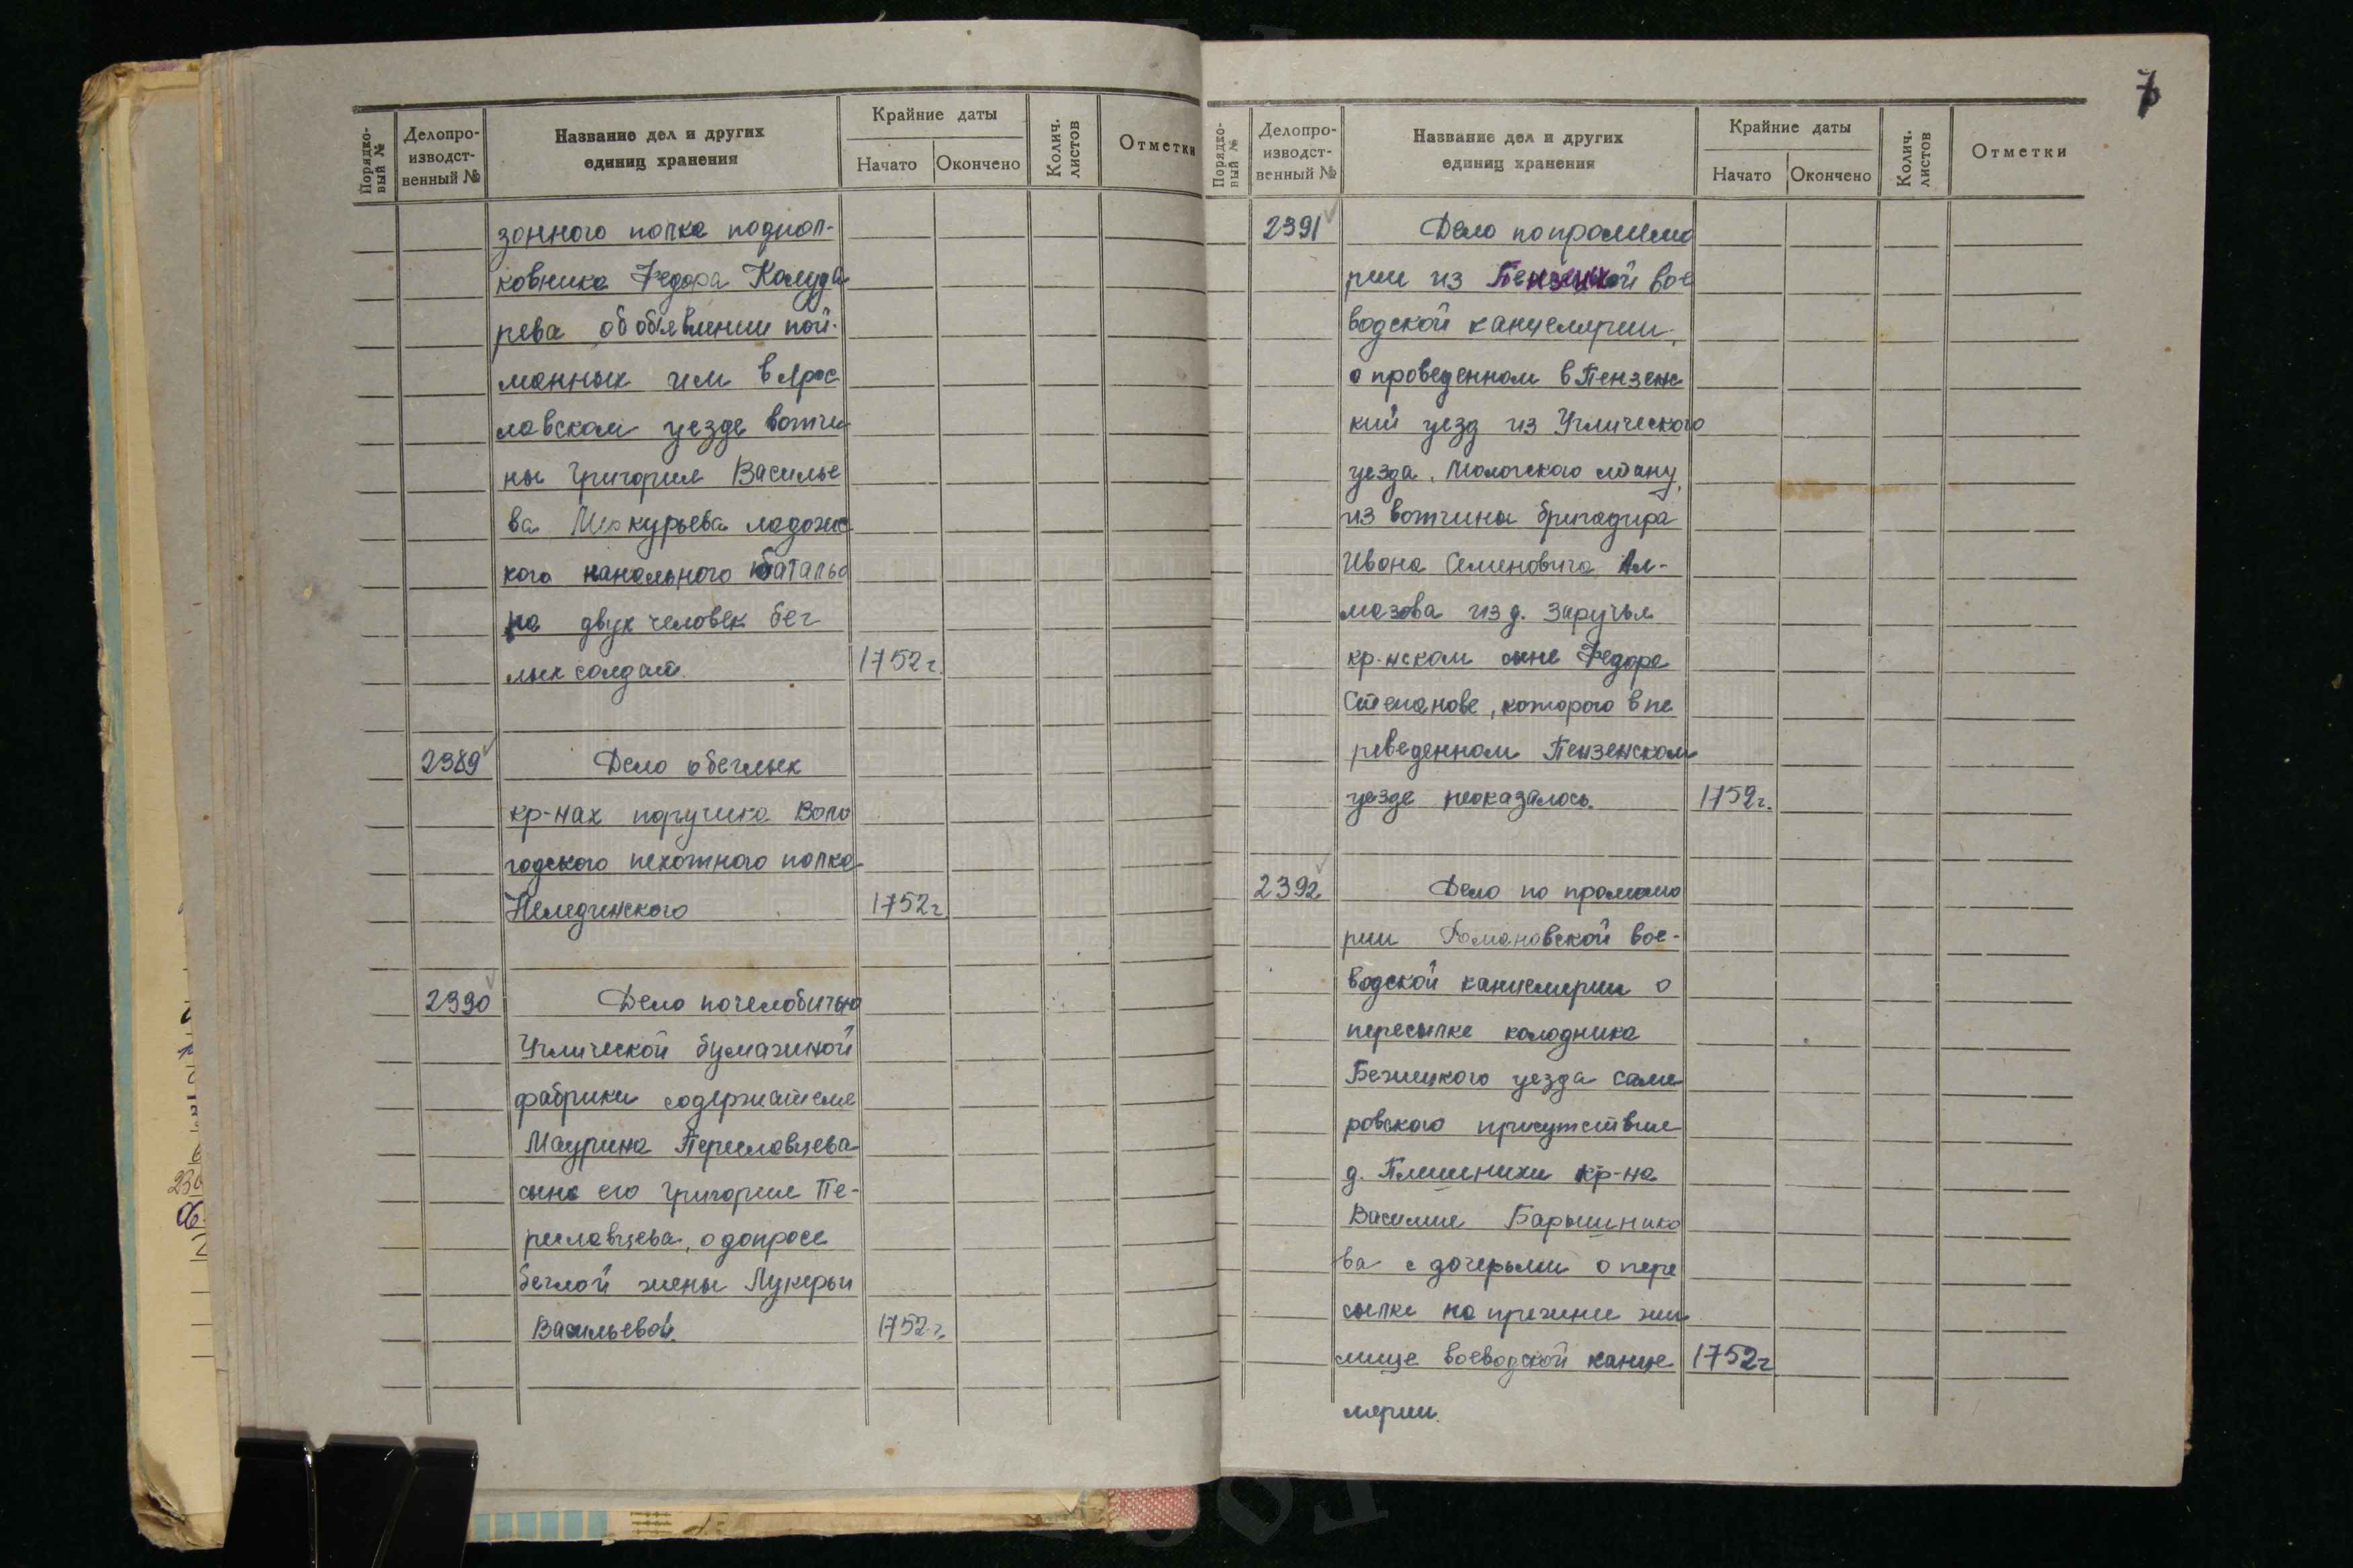 Порядко-
вый №
Делопро-
изводст-
венный №
Название дел и других
единиц хранения
Крайние даты
Начато
Окончено
Колич.
листов
Отметки
зонного полка подпол-
ковника Федора Кожуда
рева об обявлении пой-
манных им в Ярос
лавском уезде вотчи
ны Григория Василье
ва Меркурьева ладожс
кого канального баталью
на двух человек бег
лых солдат. 1752 г.
2389 Дело о беглых
кр-нах поручика Воло
годского пехотного полка
Нелединского 1752 г
2390 Дело по челобитью
Угличеcкой бумажной
фабрики содержателя
Маурина Переславцева
сына его Григория Пе-
реславцева, о допросе
беглой жены Лукерьи
Васильевой. 1752 г.
7
Порядко-
вый №
Делопро-
изводст-
венный №
Название дел и других
единиц хранения
Крайние даты
Начато
Окончено
Колич.
листов
Отметки
2391 Дело по промемо
рии из Пензенской вое
водской канцелярии,
о проведенном в Пензенс
кий уезд из Углического
уезда, Моложского стану,
из вотчины бригадира
Ивана Семеновича Ал-
мазова из д. Заручья
кр-нском сыне Федоре
Степанове, которого в пе
реведенном Пензенском
уезде неоказалось. 1752 г.
2392 Дело по промемо
рии Романовской вое-
водской канцелярии о
пересылке колодника
Бежецкого уезда
ровского присутствия
д. кр-на
Василия Барышнико
ва с дочерьми о пере
сылке на прежние жи
лище воеводской канце 1752 г
лярии.